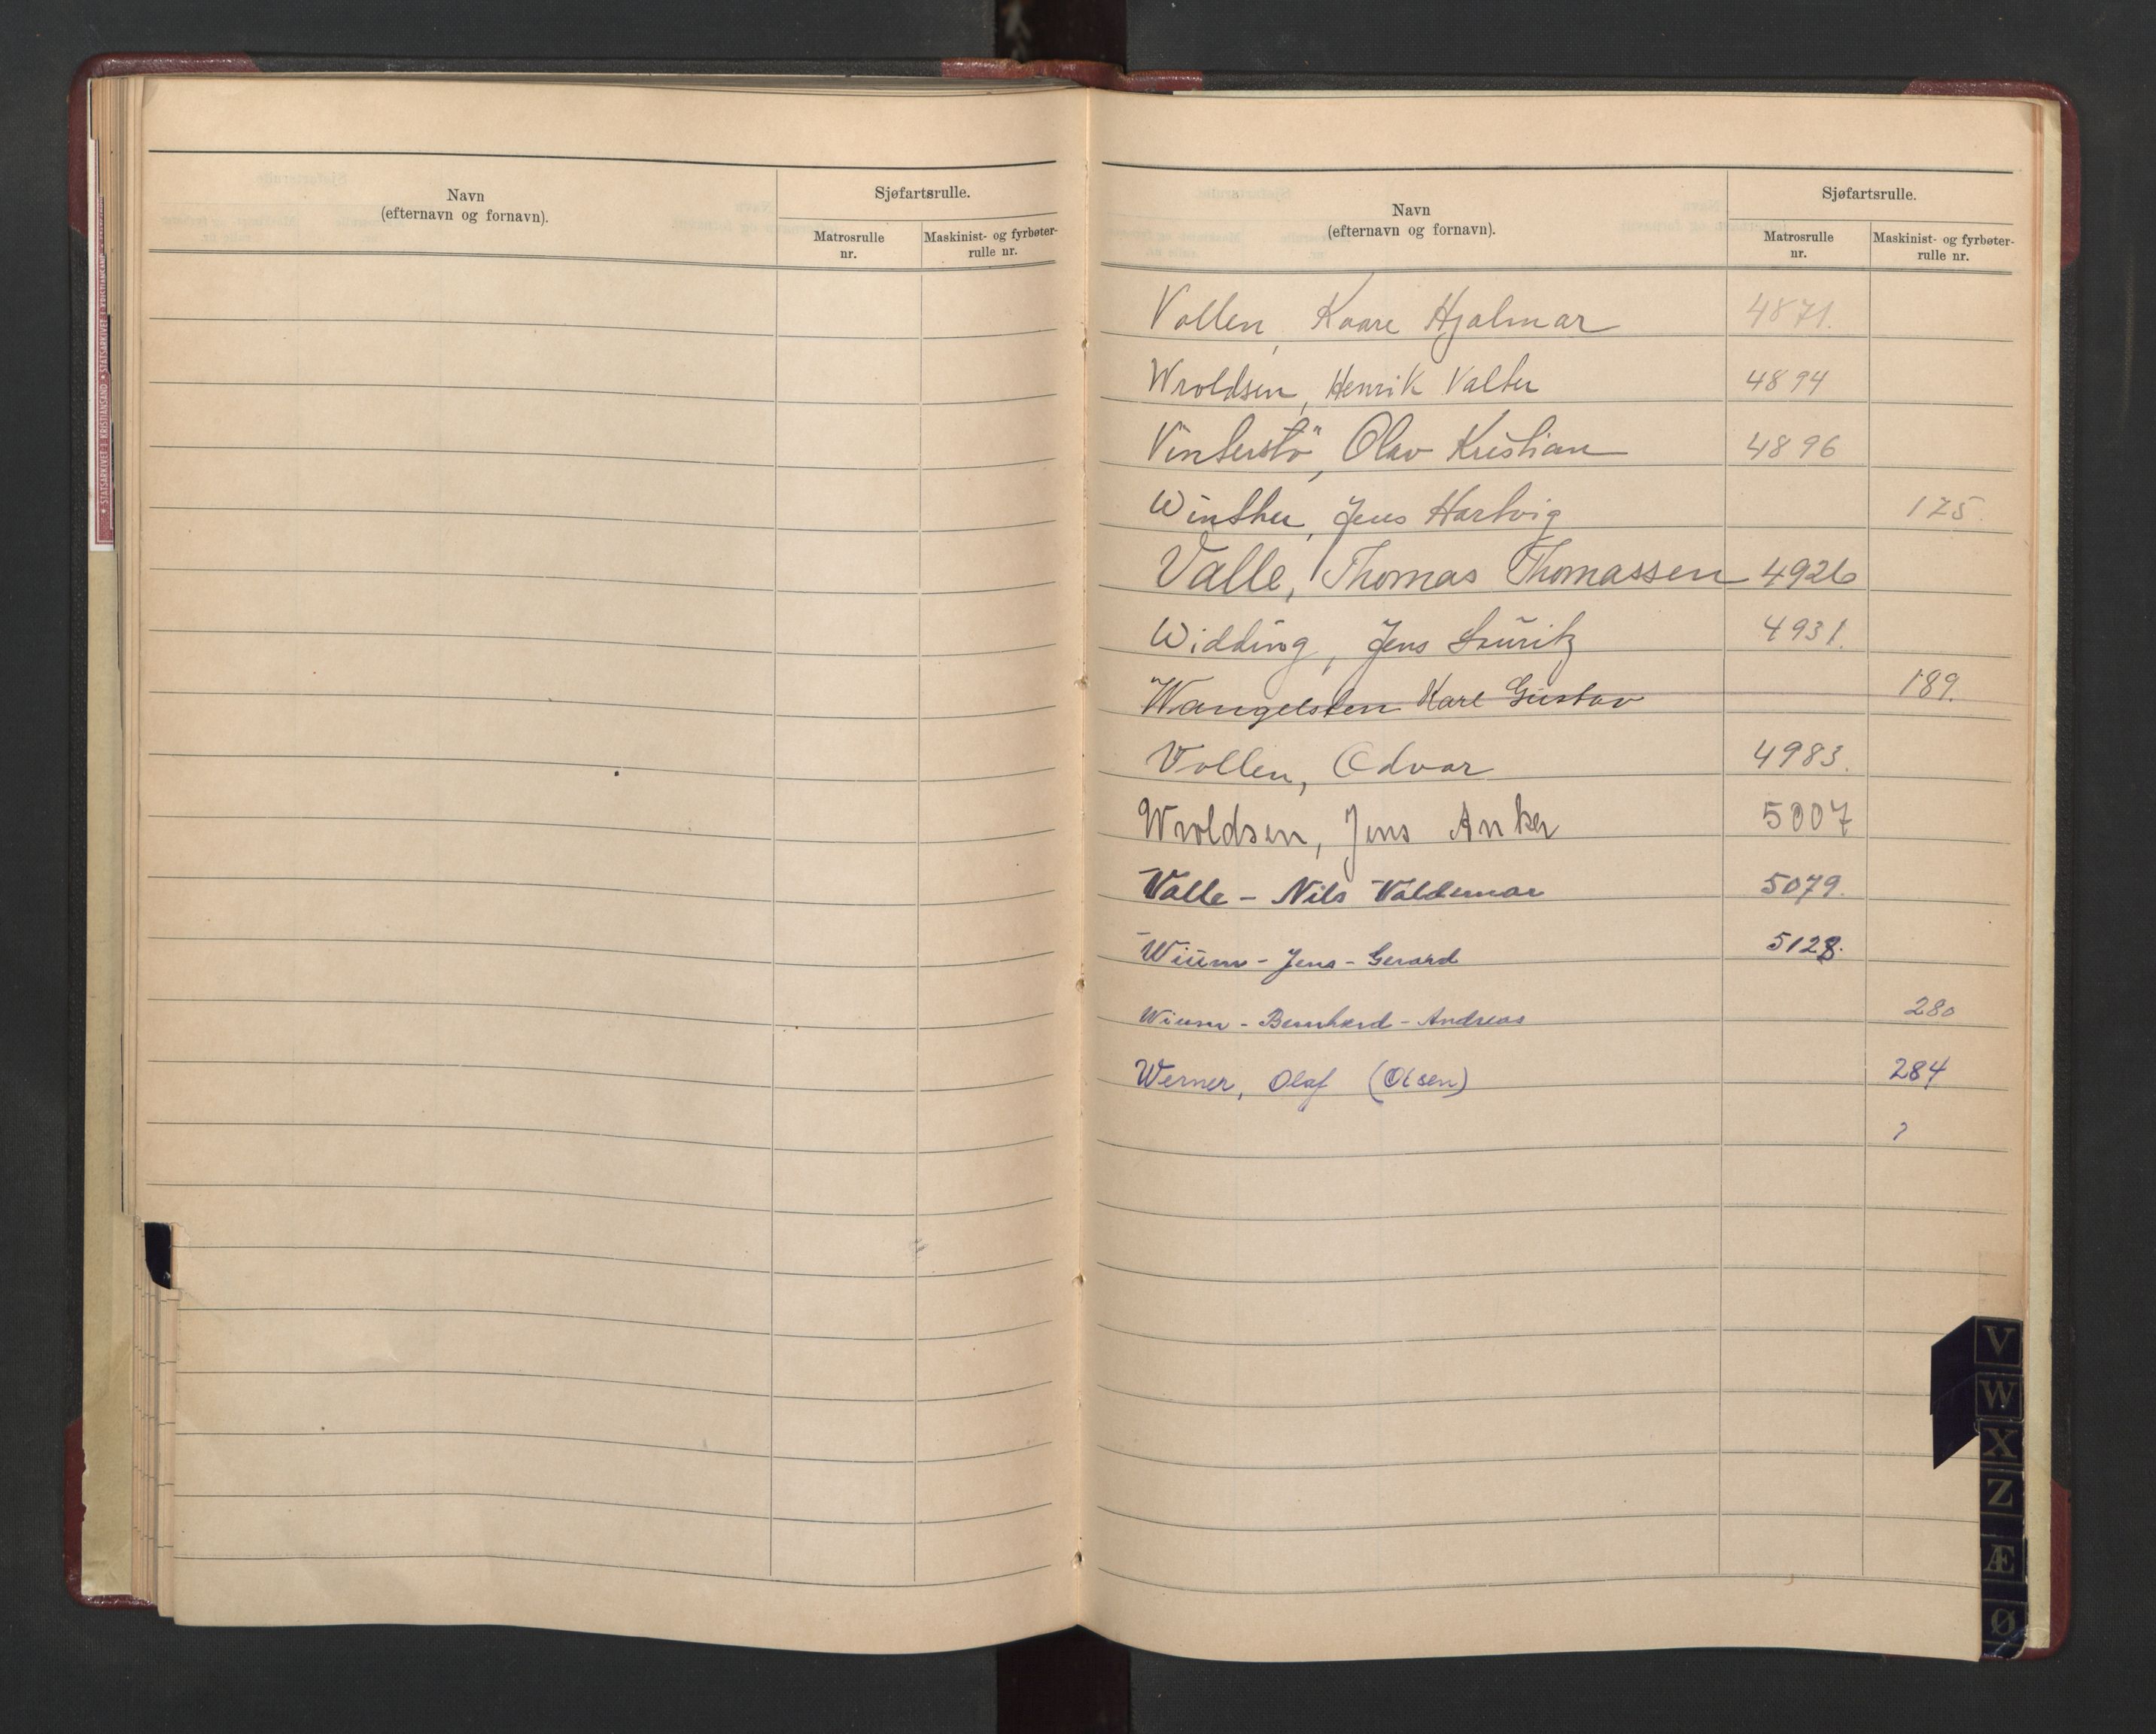 Navn
(efternavn og fornavn).
Sjøfartsrulle.
Matrosrulle
nr.
Maskinist- og fyrbøter-
rulle nr.
* STATSARKIVET I KRISTIANSAND * STATSARKIVET I KRISTIANSAND
Navn
(efternavn og fornavn).
Sjøfartsrulle.
Matrosrulle
nr.
Maskinist- og fyrbøter-
rulle nr.
Vollen, Kaare Hjalmar 4871.
Wroldsen, Henrik Valter 4894
Vinterstö, Olav Kristian 4896
Winther, Jens Hartvig 175.
Valle, Thomas Thomassen 4926
Widding, Jens Lauritz 4931.
Wangelsten Karl Gustav 189.
Vollen, Odvar 4983.
Wroldsen, Jens Anker 5007
Valle - Nils Valdemar 5079.
Wium - Jens - Gerard 5128.
Wium - Bernhard - Andreas 280
Werner, Olaf (Olsen) 284
?
V
W
X
Z
Æ
Ø